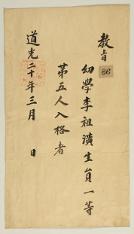 教旨
幼學李祖潢生員一等
第五人入格者
道光二十年三月 日